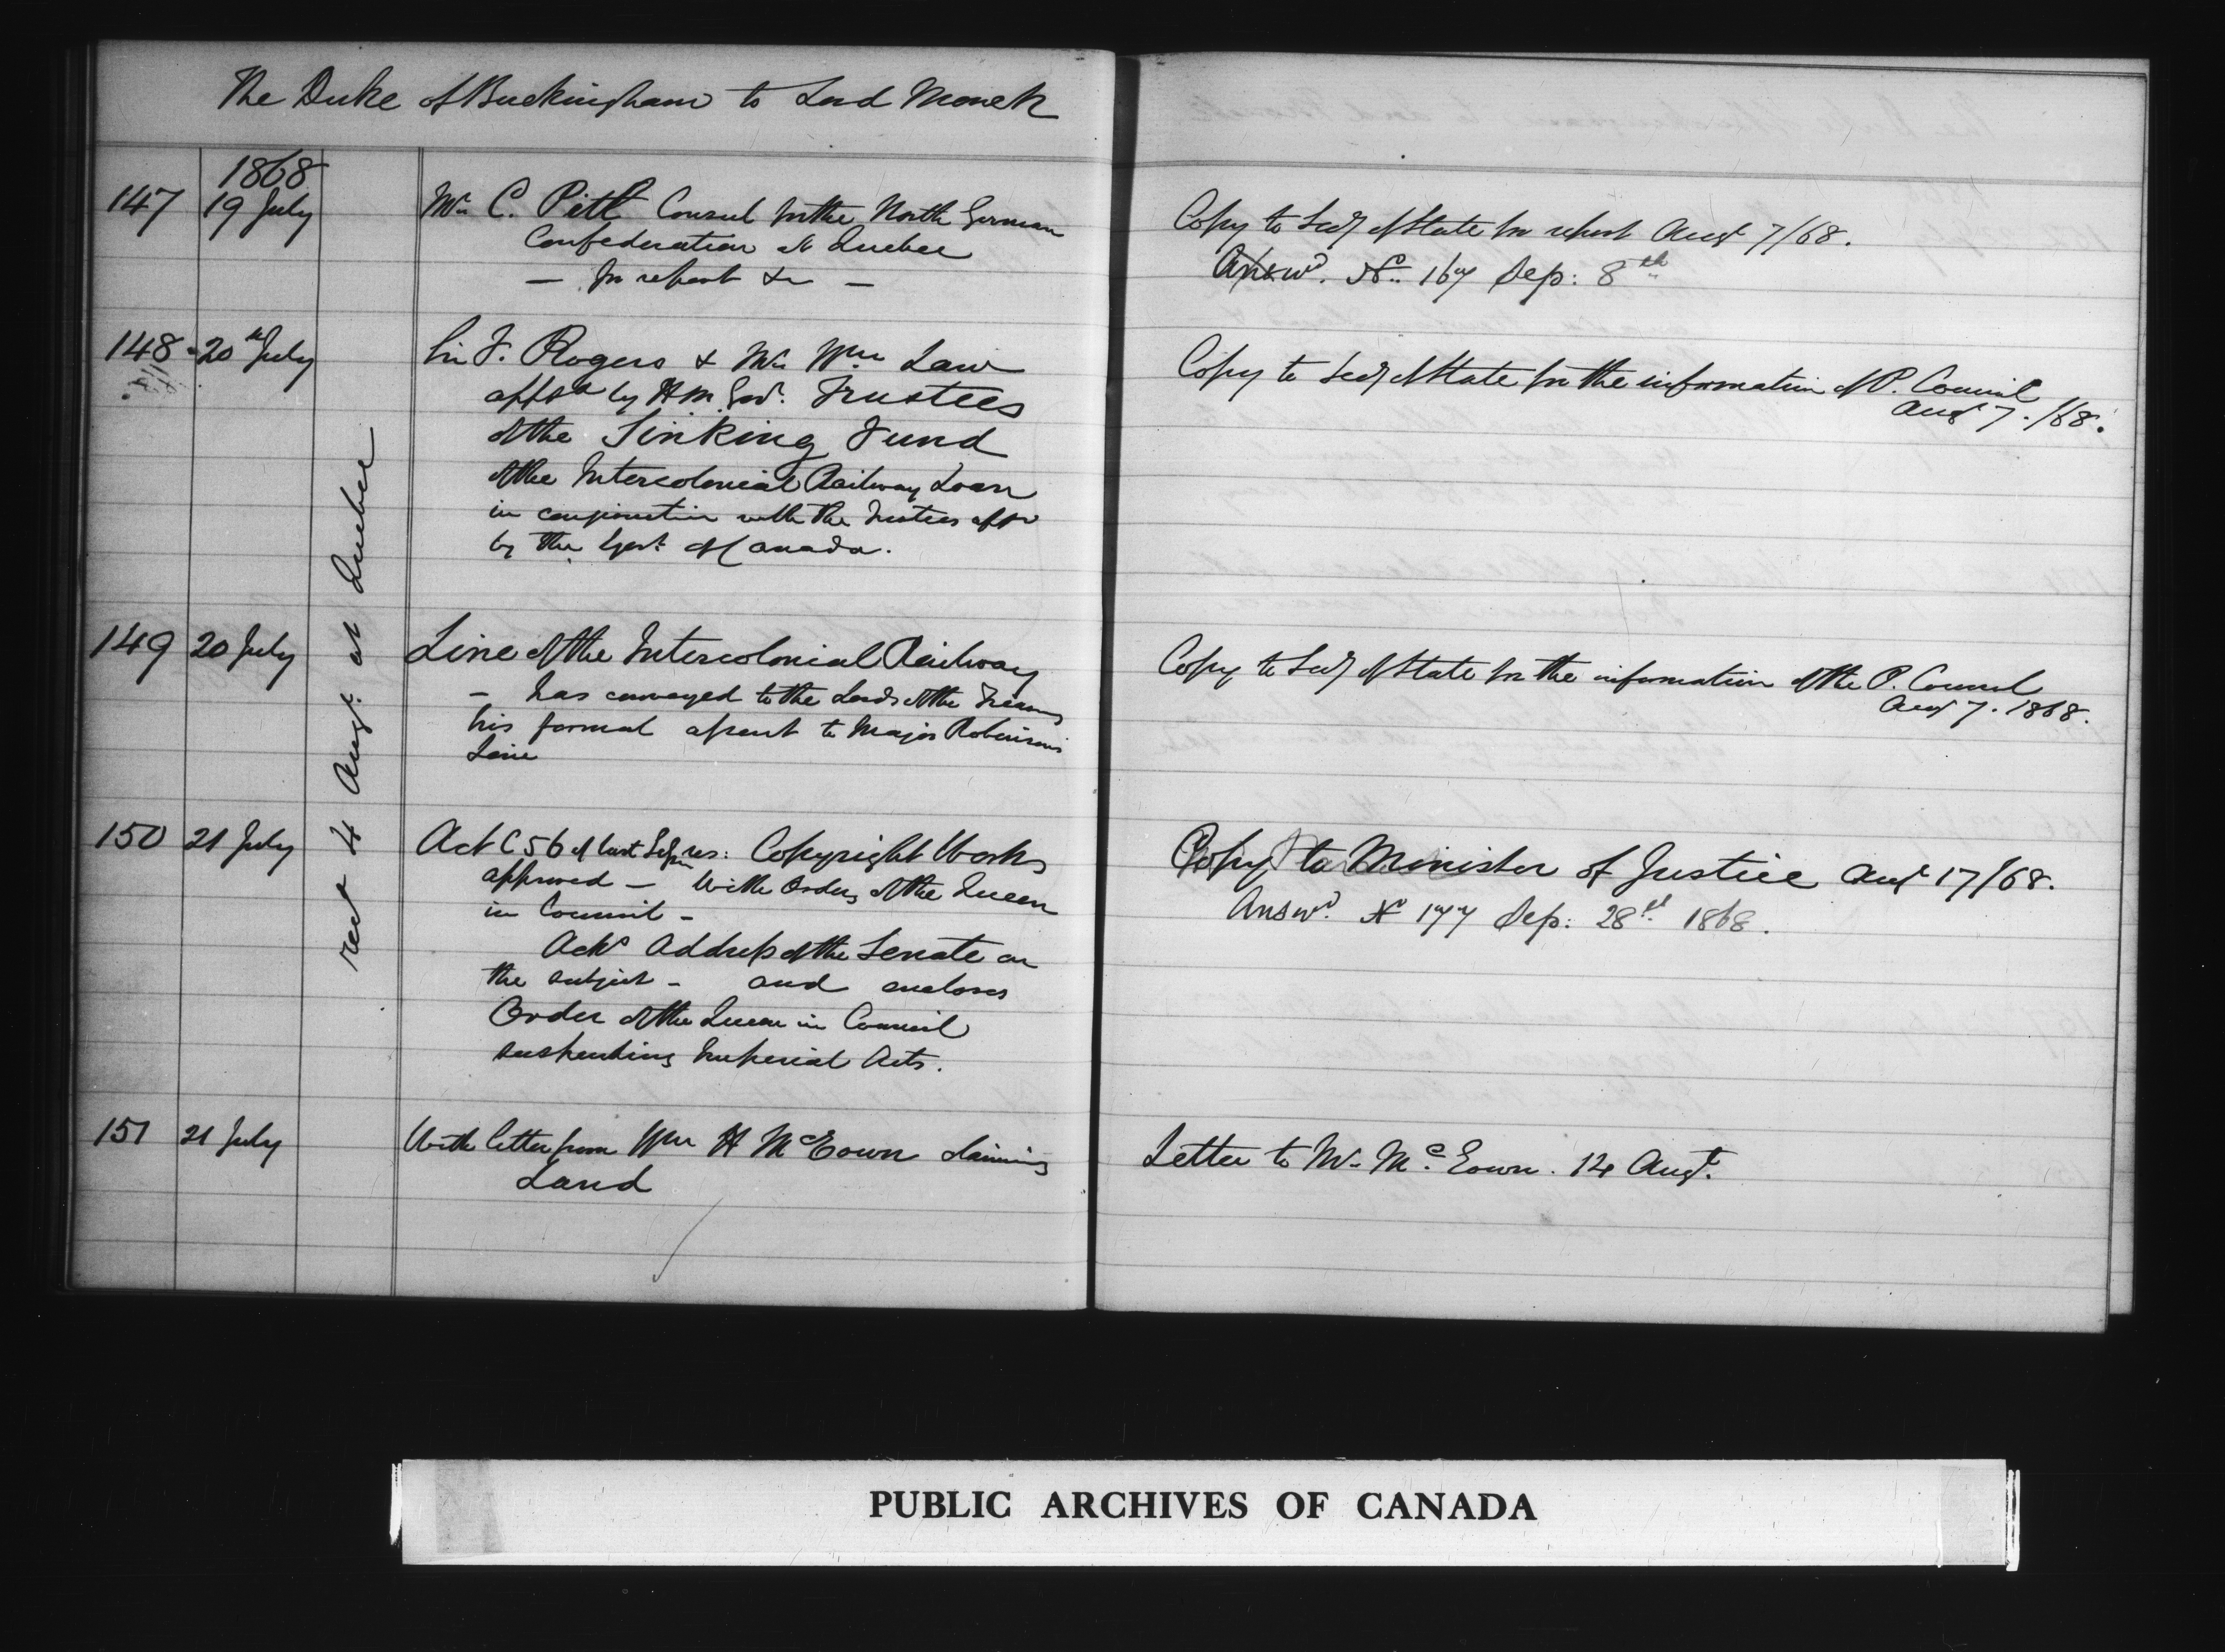 The Duke of Buckingham to Lord Monck
1868
147 19 July
Mr C. Pitt Consul for the North German
Confederation at Quebec
— for report &c —
Copy to Secy of State for report Augt 7/68.
Answd. No. 167 Sep: 8th
148 20th July
Sir F. Rogers & Mr Wm Law
apptd by H M Govt. Trustees
of the Sinking Fund
of the Intercolonial Railway Loan
in conjunction with the Trustees appd
by the Govt. of Canada.
Copy to Secy of State for the information of P. Council
Augt 7. /68.
recd 4 Augt. at Quebec
149 20 July
Line of the Intercolonial Railway
— has conveyed to the Lords of the Treasury
his formal assent to Major Robinson's
Line
Copy to Secy of State for the information of the P. Council
Augt 7. 1868.
150 21 July
Act C 56 of last Session res: Copyright Works
approved — With Order of the Queen
in Council —
Acks Address of the Senate on
the subject — and encloses
Order of the Queen in Council
suspending Imperial Acts.
Copy to Minister of Justice Augt 17/68.
Answd. No 177 Sep: 28th 1868.
151 21 July
With letter from Wm H McEown claiming
Land
Letter to Mr McEown. 14 Augt.
PUBLIC ARCHIVES OF CANADA